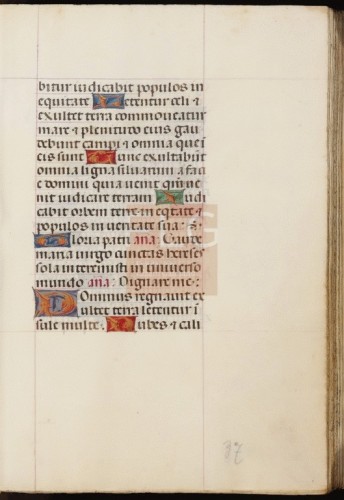 bitur iudicabit populos in
equitate Letentur celi ⁊
exultet terra commoueatur
mare ⁊ plenitudo eius gau
debunt campi ⁊ omnia que i
eis sunt Tunc exultabūt
omnia ligna siluarum a faci
e domini quia uenit qm̄ ue
nit iudicare terram Iudi
cabit orbem terre in eq̄tate ⁊
populos in ueritate sua
Gloria patri ana: Gaude
maria uirgo cunctas hereses
sola interemisti in uniuerso
mundo ana: Dignare me:
Dominus regnauit ex
ultet terra letentur i
sule multe Nubes ⁊ cali
37